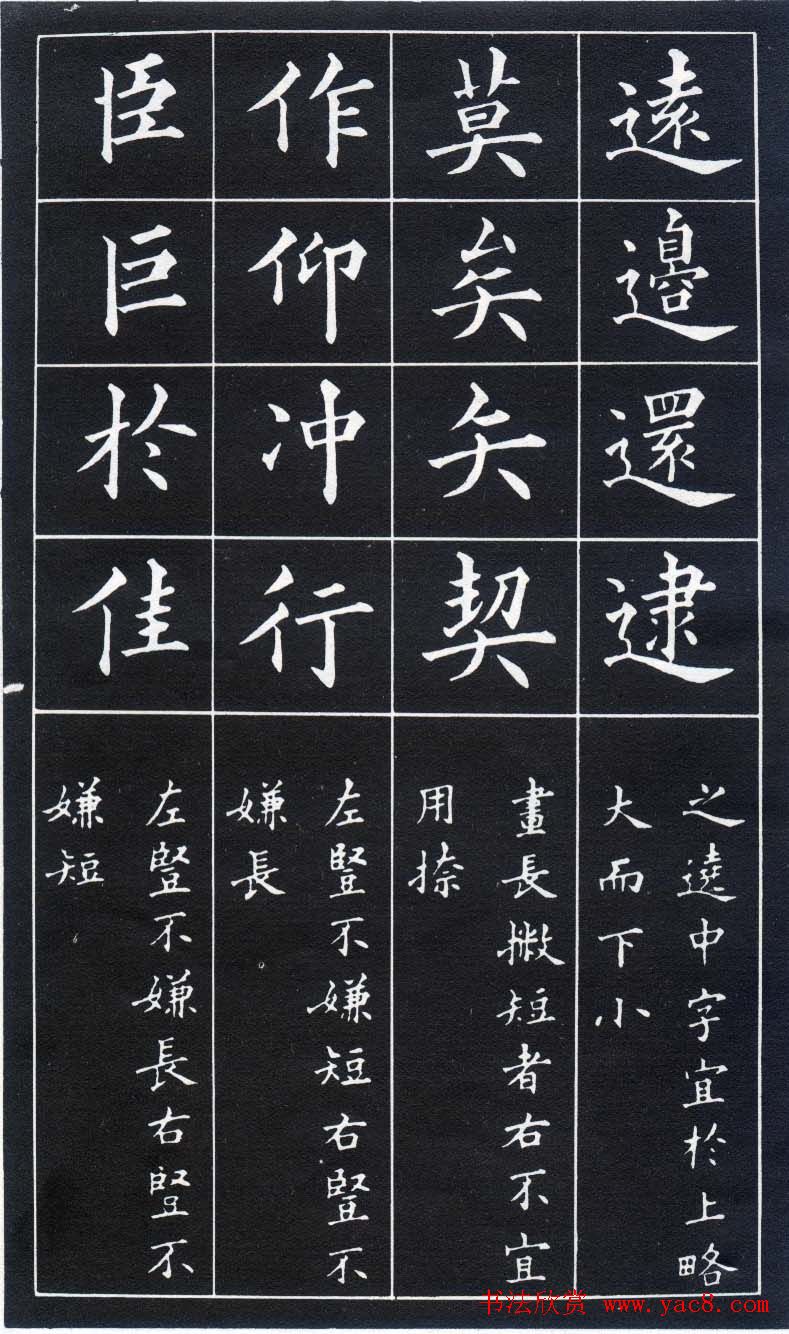 遠邊還逮
之遶中字宜於上略
大而下小
莫矣矢契
畫長撇短者右不宜
用捺
作仰冲行
左豎不嫌短右豎不
嫌長
臣巨於佳
左豎不嫌長右豎不
嫌短
书法欣赏 www.yac8.com